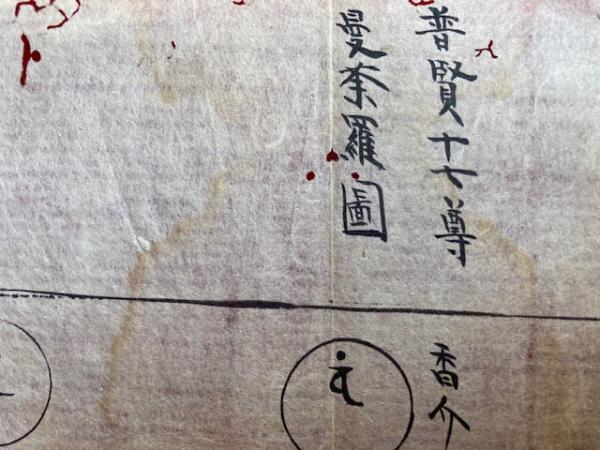 普賢十七尊
曼荼羅圖
香介